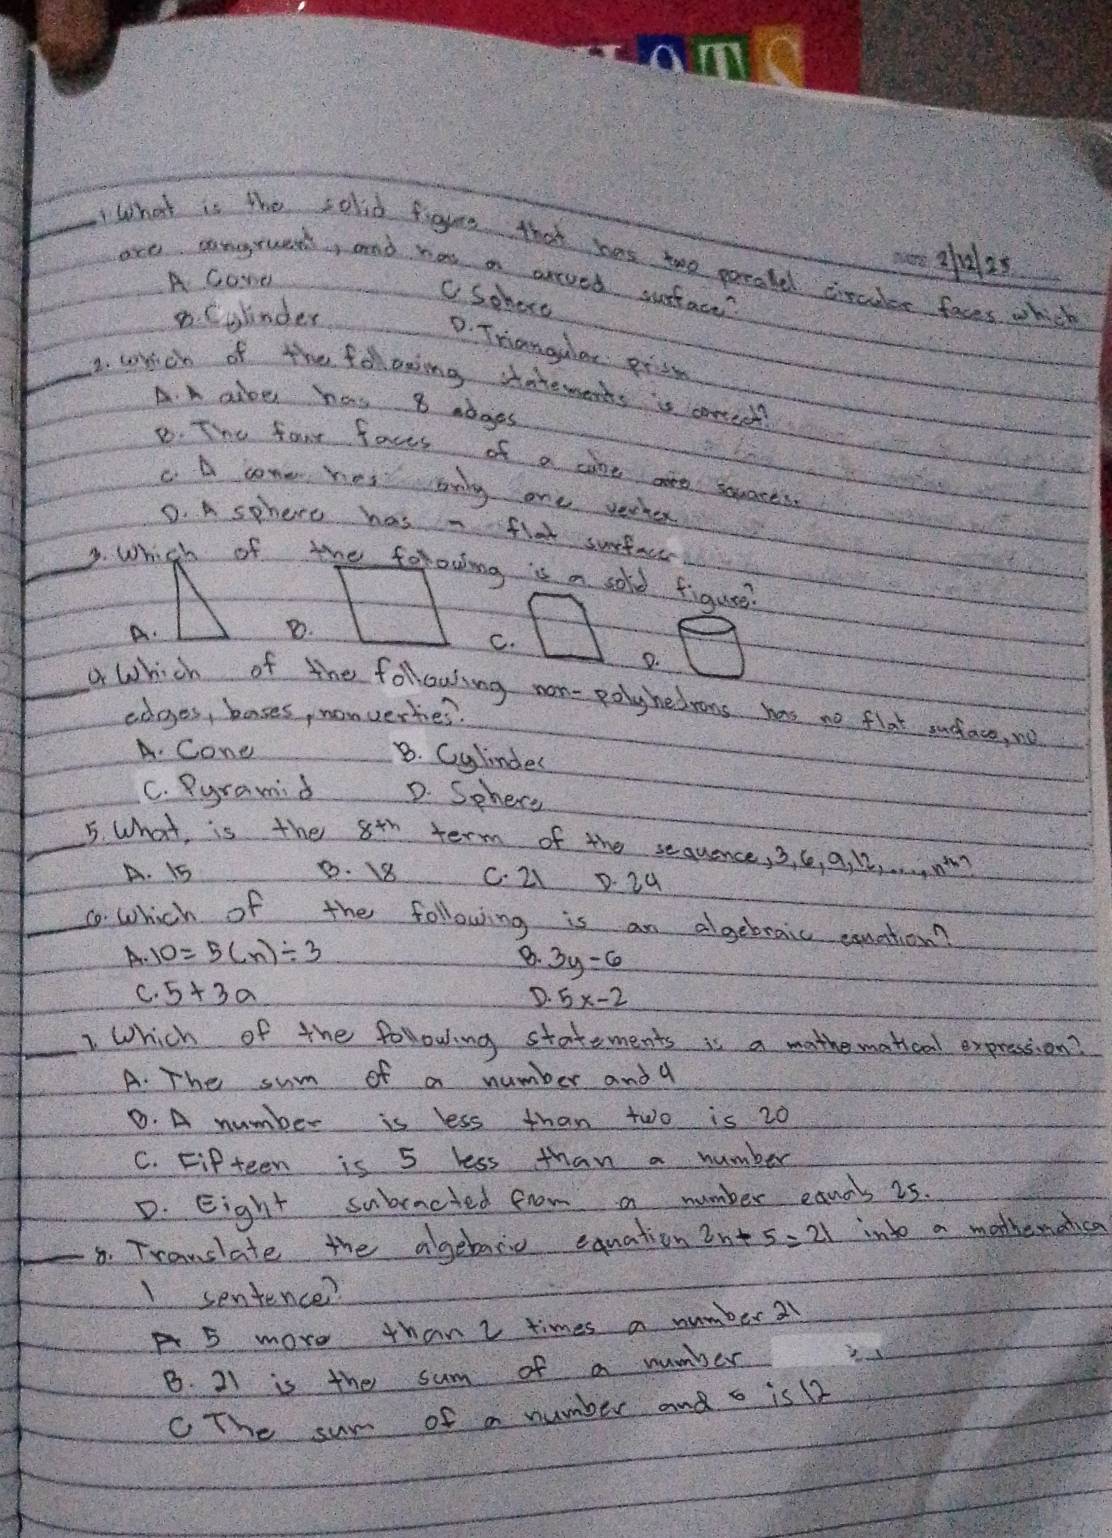 OTS
2/12/25
1. What is the solid figure that has two parallel circular faces which
are congruent, and has a curved surface?
A. Cone
C. Sphere
B. Cylinder
D. Triangular prism
2. Which of the following statements is correct?
A. A cube has 8 edges
B. The four faces of a cube are squares.
C. A cone has only one vertex
D. A sphere has a flat surface
3. Which of the folowing is a solid figure?
A. B. C. D.
4. Which of the following non-polyhedrons has no flat surface, no
edges, bases, nonverties?
A. Cone B. Cylinder
C. Pyramid D. Sphere
5. What is the 8th term of the sequence, 3, 6, 9, 12, ...., nth?
A. 15 B. 18 C. 21 D. 24
6. Which of the following is an algebraic equation?
A. 10 = 5(n) ÷ 3 B. 3y - 6
C. 5 + 3a D. 5x - 2
7. Which of the following statements is a mathematical expression?
A. The sum of a number and 9
B. A number is less than two is 20
C. Fifteen is 5 less than a number
D. Eight subracted from a number equals 25.
8. Translate the algebaric equation 2n + 5 = 21 into a mathematica
l sentence?
A 5 more than 2 times a number 21
B. 21 is the sum of a number
C The sum of a number and is 12